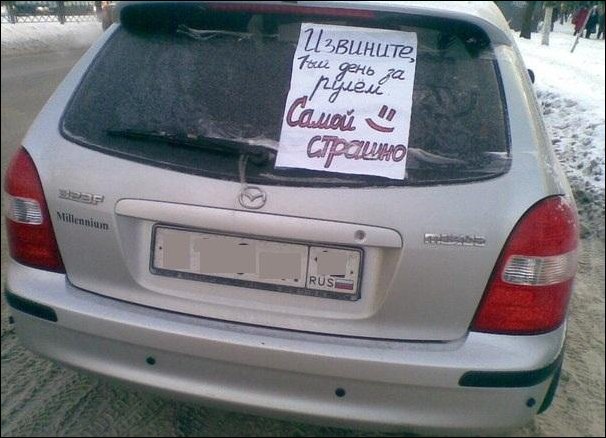 Извините,
1ый день за
рулем
Самой
страшно
Millennium
mazda
RUS